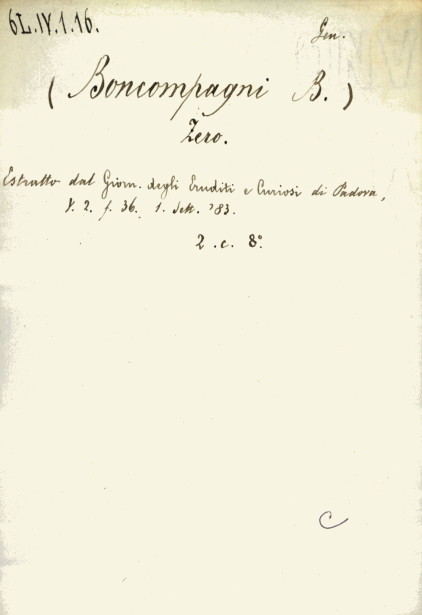 6L.IV.1.16.
Gen.
( Boncompagni B. )
Zero.
Estratto dal Giorn. degli Eruditi e Curiosi di Padova,
V. 2. f. 36. 1. Sett. '83.
2. c. 8°.
C